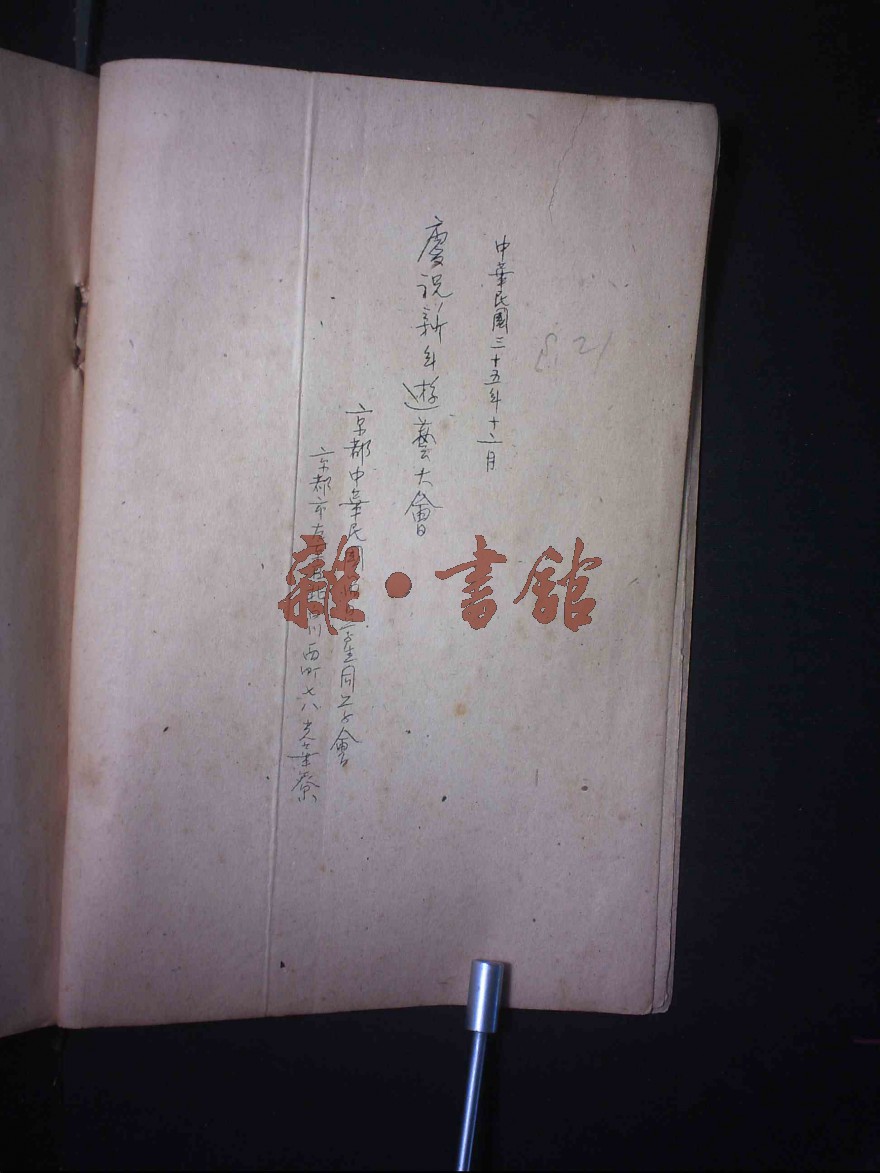 中華民國三十五年十二月
慶祝新年遊藝大會
京都中華民國 學生同學會
京都市左京區 川西町七八光華寮
雜·書館
21